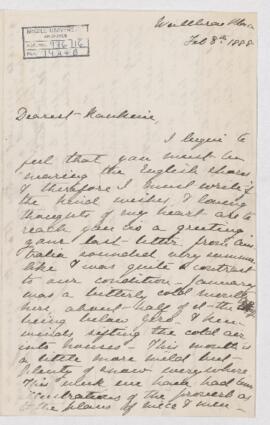 McGILL UNIVERSITY
ARCHIVES
ACC. NO. 976/16
REF. 1424B
Feb 3rd. 1888
Dearest
I begin to
feel that you must be
nearing the English shores
& therefore I must write if
the kind wishes, & loving
thoughts of my heart are to
reach you as a greeting
your last letter from Aus-
tralia sounded very summer
like & was quite a contrast
to our condition - January
was a bitterly cold month
here, about half of it the
being below zero & her-
sifting the cold air
into houses - This month is
a little more mild but
plenty of snow everywhere
This week we have had two
illustrations of the proverb as
to the plans of mice & men -